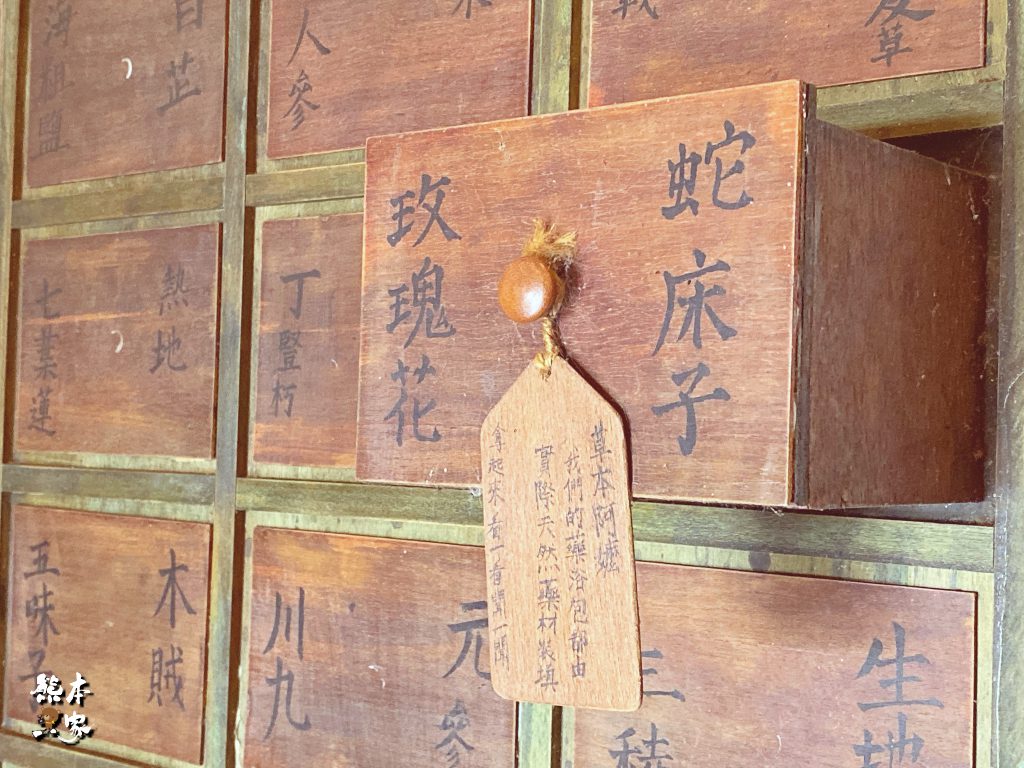 白芷
人參
草
蛇床子
玫瑰花
熱地
七葉蓮
丁豎朽
草本阿嬤
我們的藥浴包都由
實際天然藥材裝填
拿起來看一看聞一聞
木賊
五味子
元參
川九
生地
三稜
熊本一家